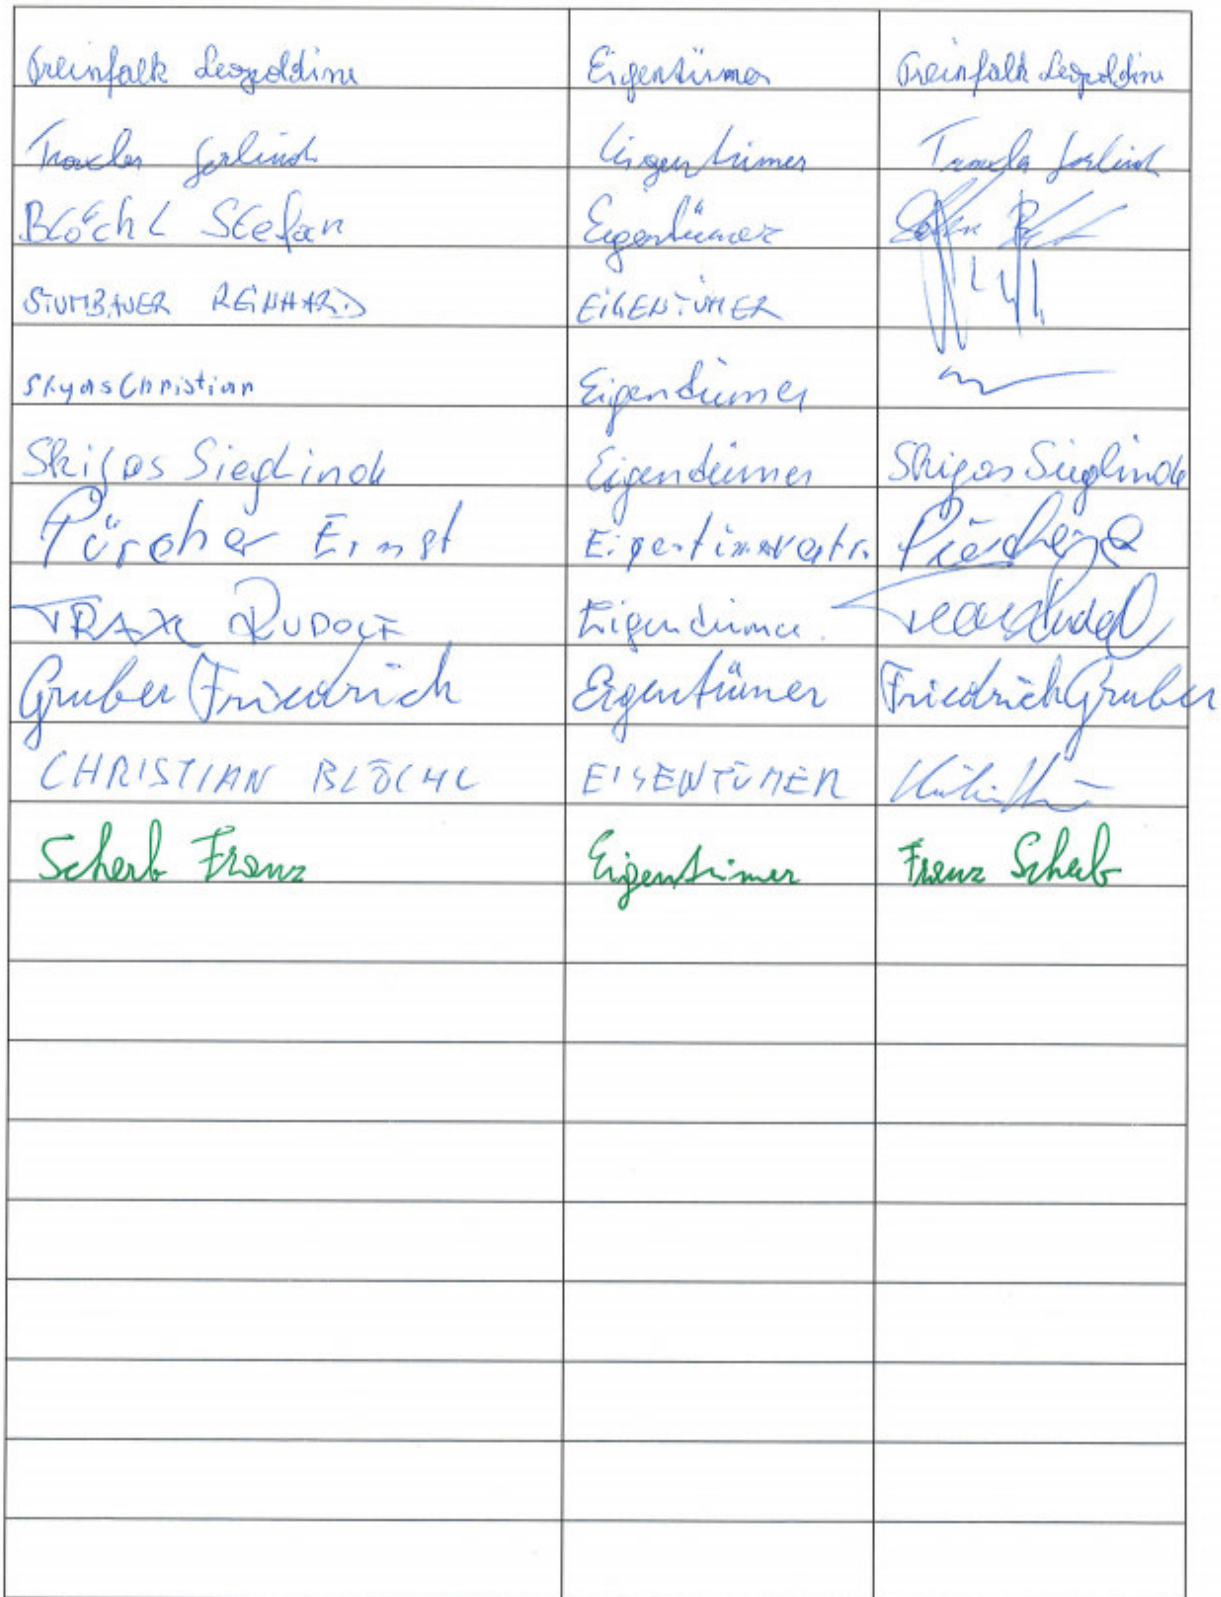 Freinfalk Leopoldine Eigentümer Freinfalk Leopoldine
Traxler Gerlinde Eigentümer Traxler Gerlinde
Blöchl Stefan Eigentümer Stefan
STUMBAUER REINHARD EIGENTÜMER
Skyas Christian Eigentümer
Skigas Sieglinde Eigentümer Skigas Sieglinde
Pürcher Ernst
TRAXL RUDOLF Eigentümer
Gruber Friedrich Eigentümer Friedrich Gruber
CHRISTIAN BLÖCHL EIGENTÜMER
Scherb Franz Eigentümer Franz Scherb